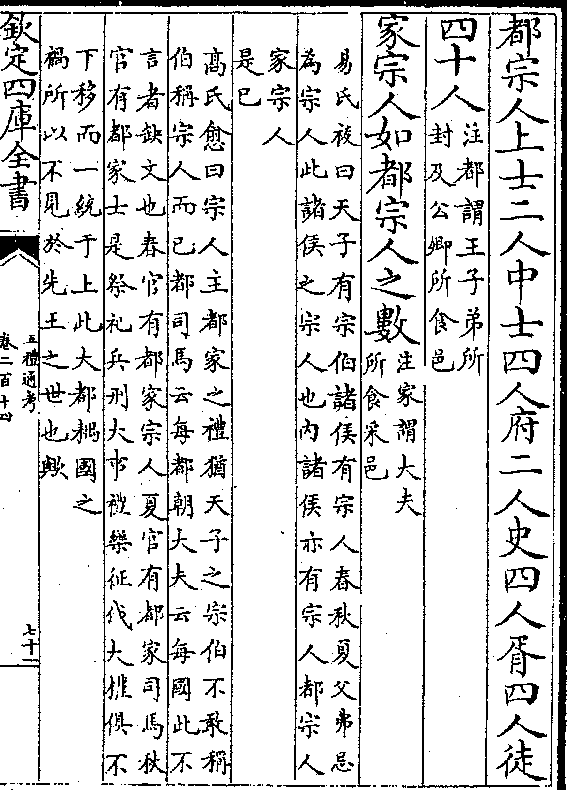 都宗人上士二人中士四人府二人史四人胥四人徒
四十人
注都謂王子弟所
封及公卿所食邑
家宗人如都宗人之數
注家謂大夫
所食采邑
易氏祓曰天子有宗伯諸侯有宗人春秋夏父弗忌
為宗人此諸侯之宗人也內諸侯亦有宗人都宗人
家宗人
是已
髙氏愈曰宗人主都家之禮猶天子之宗伯不敢稱
伯稱宗人而已都司馬云每都朝大夫云每國此不
言者缺文也春官有都家宗人夏官有都家司馬秋
官有都家士是祭祀兵刑大事禮樂征伐大權俱不
下移而一統于上此大都耦國之
禍所以不見於先王之世也歟
欽定四庫全書
五禮通考
卷二百十四
七十二